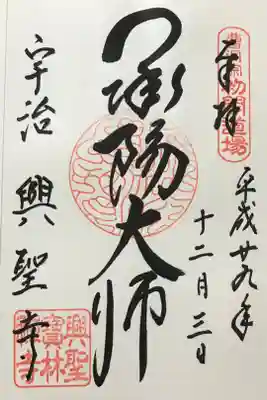 曹洞宗初開道場
奉拝
平成廿九年
十二月三日
承陽大师
宇治 興聖寺
興聖
寶林
禪寺